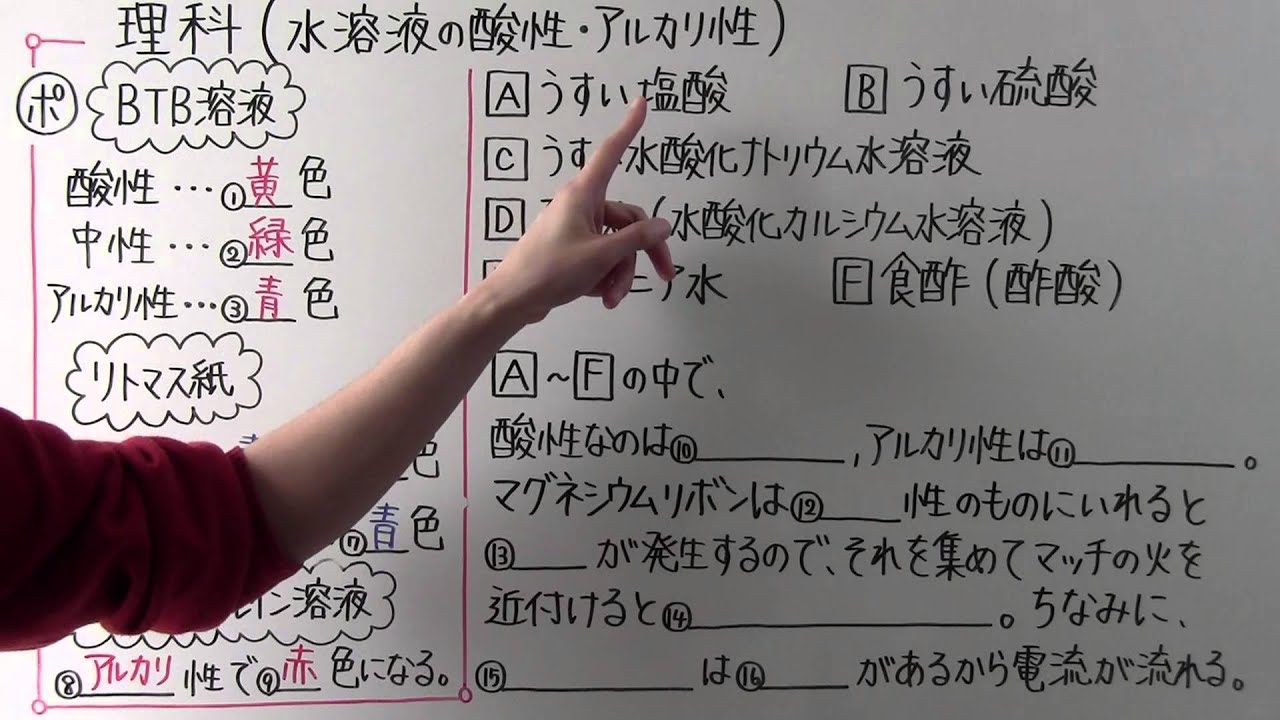 理科(水溶液の酸性・アルカリ性)
ポ BTB溶液
酸性…①黄色
中性…②緑色
アルカリ性…③青色
リトマス紙
色
⑦青色
イン溶液
⑧アルカリ性で⑨赤色になる。
A うすい塩酸 B うすい硫酸
C うす 水酸化ナトリウム水溶液
D (水酸化カルシウム水溶液)
ニア水 F 食酢(酢酸)
A~Fの中で、
酸性なのは⑩____,アルカリ性は⑪____。
マグネシウムリボンは⑫____性のものにいれると
⑬____が発生するので、それを集めてマッチの火を
近付けると⑭____。ちなみに、
⑮____は⑯____があるから電流が流れる。